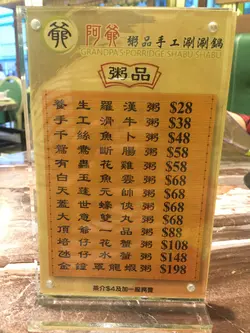 爺 阿爺 粥品手工涮涮鍋
GRANDPA'S PORRIDGE SHABU SHABU
粥品
養生羅漢粥 $28
手工滑牛粥 $38
千絲魚卜粥 $48
鴛鴦斷腸粥 $58
有蟲花雞粥 $58
白玉魚雲粥 $68
天蓬元帥粥 $68
蓋世蠔俠粥 $68
大意雙丸粥 $68
頂爺一品粥 $88
培仔花蟹粥 $108
氹仔水蟹粥 $148
金鐘罩龍蝦粥 $198